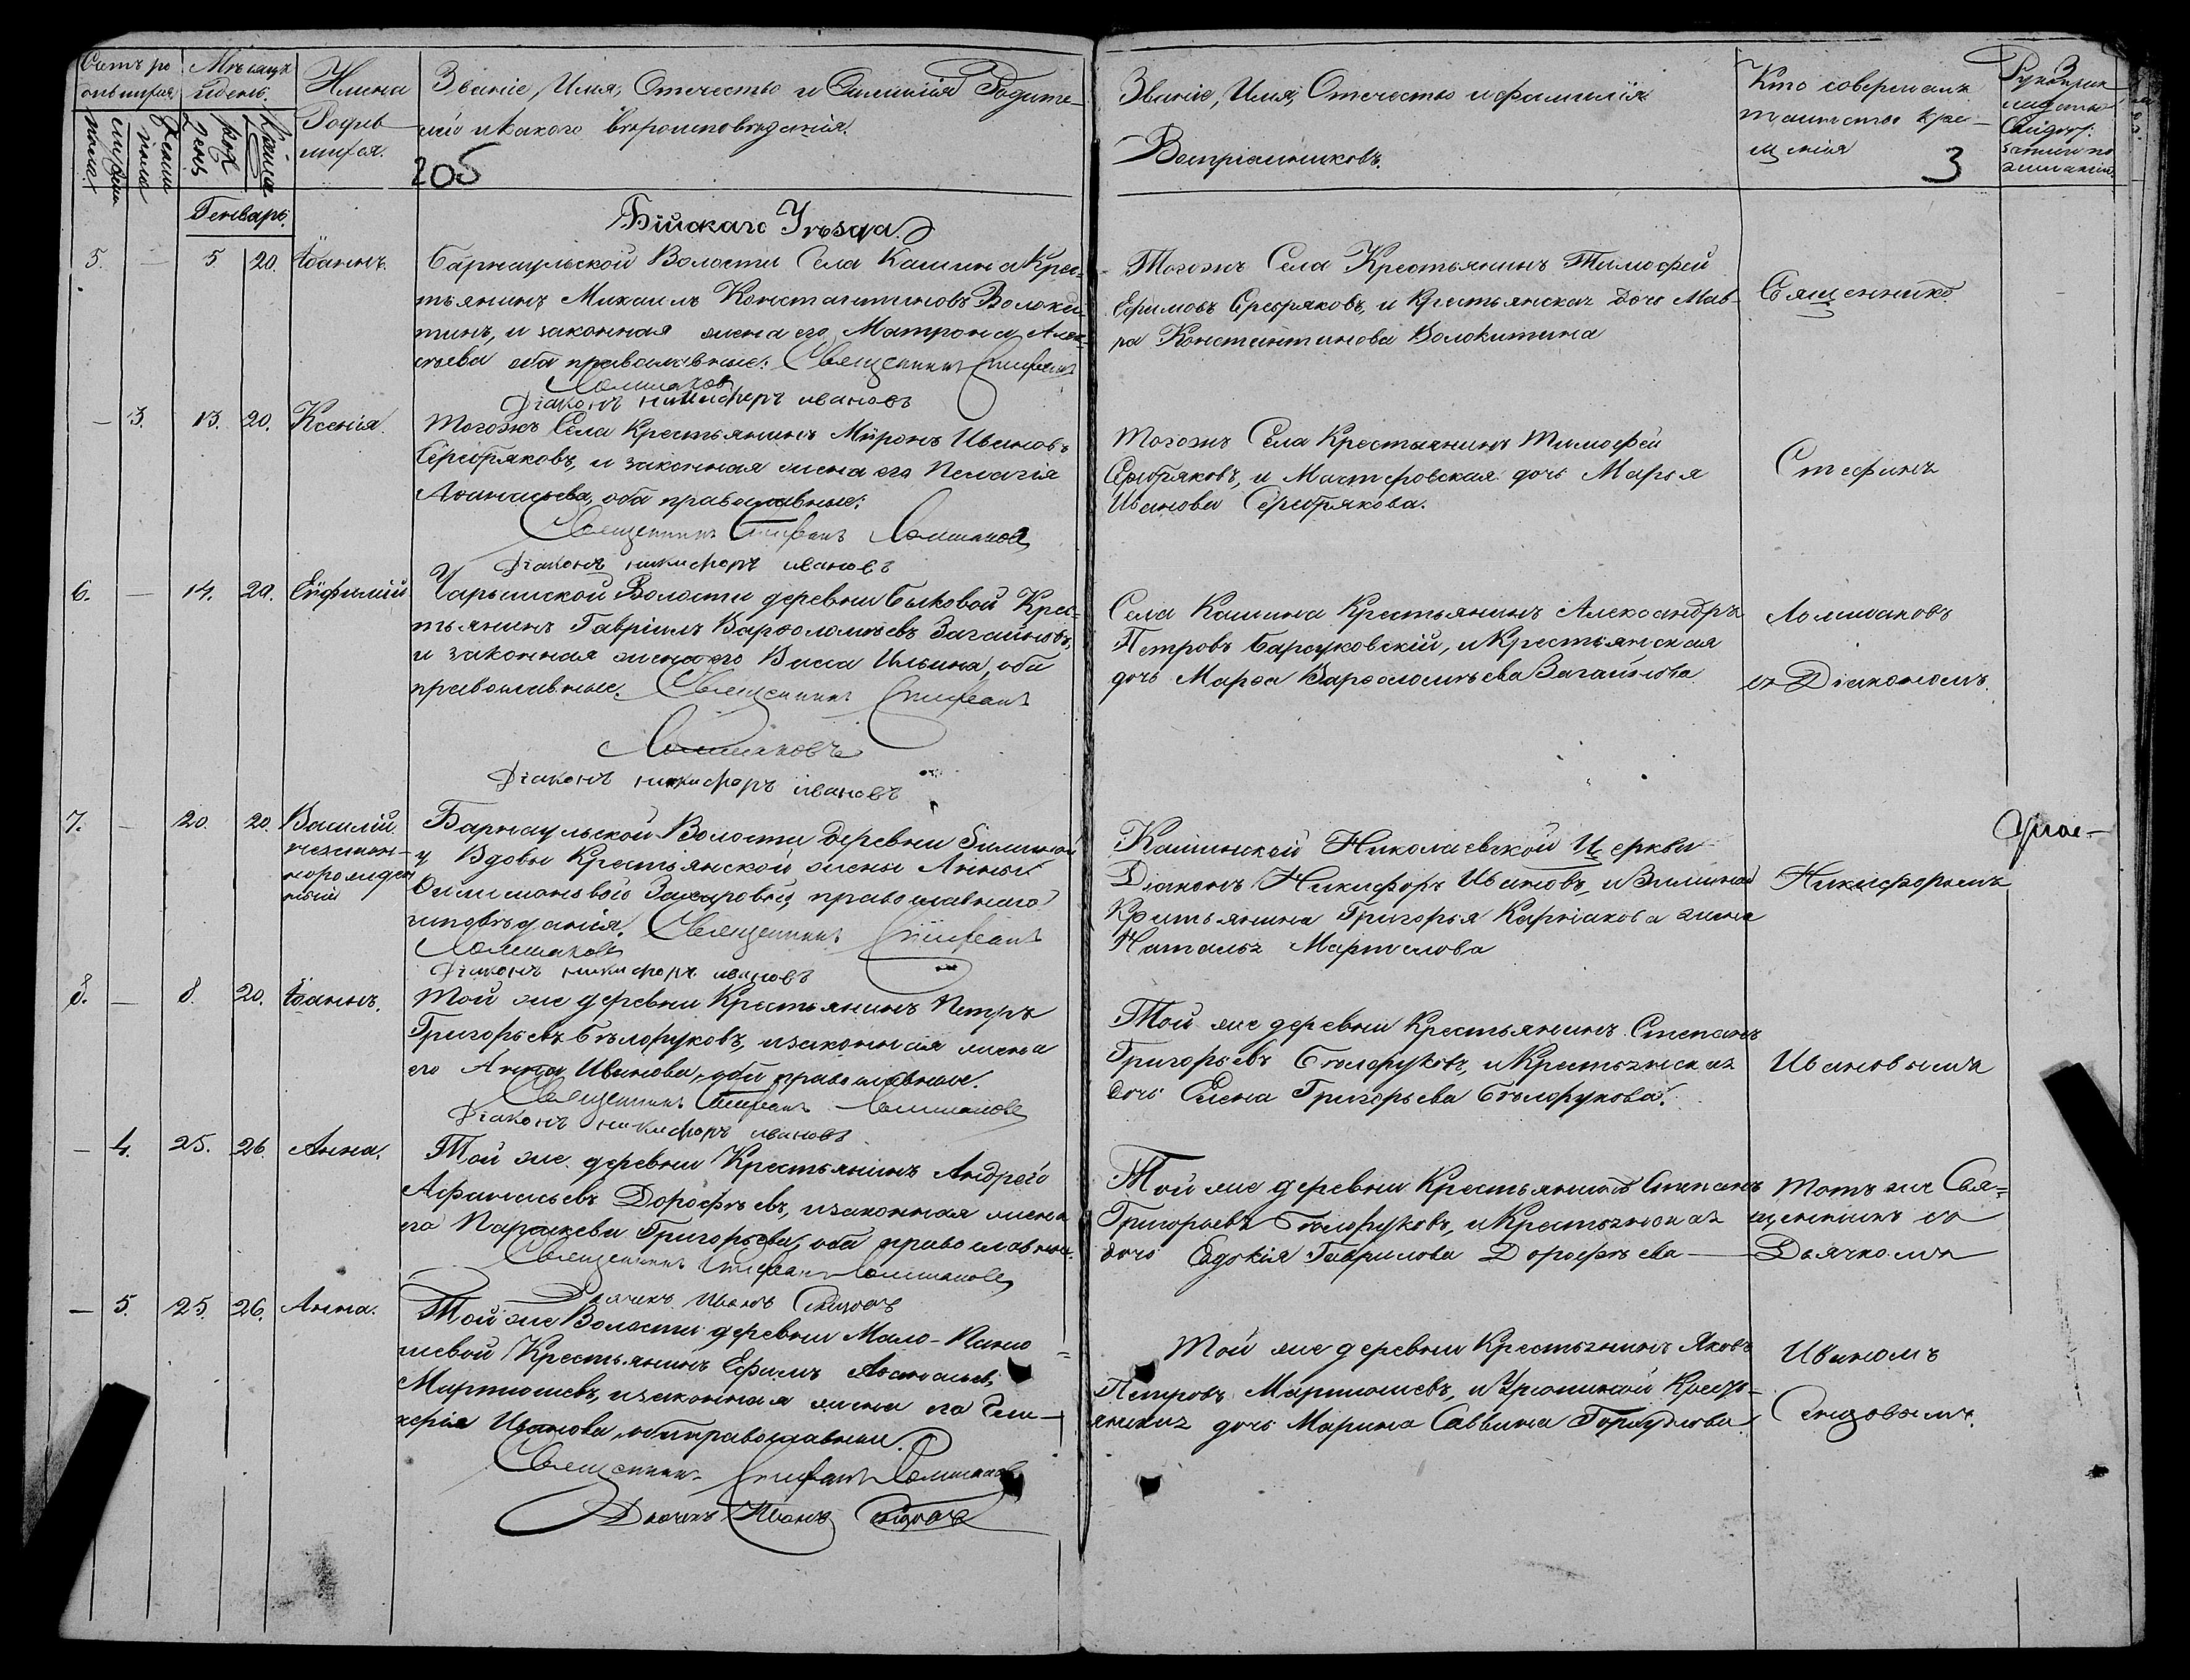 Счетъ ро
дившихся
Мѣсяцъ
и день.
Имена
Родив
шихся.
Званіе, Имя, Отчество и Фамилія Родите-
лей и какого вѣроисповѣданія.
205
Званіе, Имя, Отчество и фамилія
Воспріемниковъ.
Кто совершалъ
таинство кре-
щенія
3
Генварь.
Бійскаго Уѣзда.
5. — 5 20. Іоаннъ. Барнаульской Волости Села Кашина Крес-
тьянинъ Михаилъ Константиновъ Волоки-
тинъ, и законная жена его Матрона Алек-
сѣева оба православные. Священникъ Стефанъ
Ломшаковъ
Діаконъ никифоръ ивановъ
Тогожъ Села Крестьянинъ Тимофей
Ефимовъ Серебряковъ, и Крестьянская дочь Мав-
ра Константинова Волокитина
Священникъ
— 3. 13. 20. Ксенія. Тогожъ Села Крестьянинъ Миронъ Ивановъ
Серебряковъ, и законная жена его Пелагія
Аѳанасьева, оба православные.
Священникъ Стефанъ Ломшаковъ
Діаконъ никифоръ ивановъ
Тогожъ Села Крестьянинъ Тимофей
Серебряковъ, и Мастеровская дочь Марья
Иванова Серебрякова.
Стефанъ
6. — 14. 20. Евфимій Чарышской Волости деревни Быковой Крес-
тьянинъ Гавріилъ Варѳоломѣевъ Загайновъ,
и законная жена его Васса Ильина, оба
православные. Священникъ Стефанъ
Ломшаковъ
Діаконъ никифоръ ивановъ
Села Кашина Крестьянинъ Александръ
Петровъ Барсуковскій, и Крестьянская
дочь Марѳа Варѳоломѣева Загайнова
Ломшаковъ
съ Діакономъ
7. — 20. 20. Василій
незакон-
норожден
ный
Барнаульской Волости деревни Зиминой
у Вдовы Крестьянской жены Анны
православнаго
исповѣданія. Священникъ Стефанъ
Ломшаковъ
Діаконъ никифоръ ивановъ
Кашинской Николаевской Церкви
Діаконъ Никифоръ Ивановъ, и Зиминой
Крестьянина Григорья жена
Наталья Мартемова
Никифоромъ
8. — 8. 20. Іоаннъ. Той же деревни Крестьянинъ Петръ
Григорьевъ Бѣлоруковъ, и законная жена
его Анна Иванова, оба православные.
Священникъ Стефанъ Ломшаковъ
Діаконъ никифоръ ивановъ
Той же деревни Крестьянинъ Степанъ
Григорьевъ Бѣлоруковъ, и Крестьянская
дочь Елена Григорьева Бѣлорукова.
Ивановымъ
— 4. 25. 26. Анна. Той же деревни Крестьянинъ Андрей
Афанасьевъ Дорофѣевъ, и законная жена
его Параскева Григорьева, оба православные.
Священникъ Стефанъ Ломшаковъ
Дьячекъ Иванъ
Той же деревни Крестьянинъ Степанъ
Григорьевъ Бѣлоруковъ, и Крестьянская
дочь Евдокія Гаврилова Дорофѣева
Тотъ же Свя-
щенникъ съ
Дьячкомъ
— 5. 25. 26. Анна. Той же Волости деревни Мало-Паню
шевой Крестьянинъ Ефимъ Аѳанасьевъ
Мартюшевъ, и законная жена его Гли-
керія Иванова, оба православные.
Священникъ Стефанъ Ломшаковъ
Дьячекъ Иванъ
Той же деревни Крестьянинъ Яковъ
Петровъ Мартюшевъ, и Урюпиной Кресть-
янская дочь Марина Саввина
Иваномъ